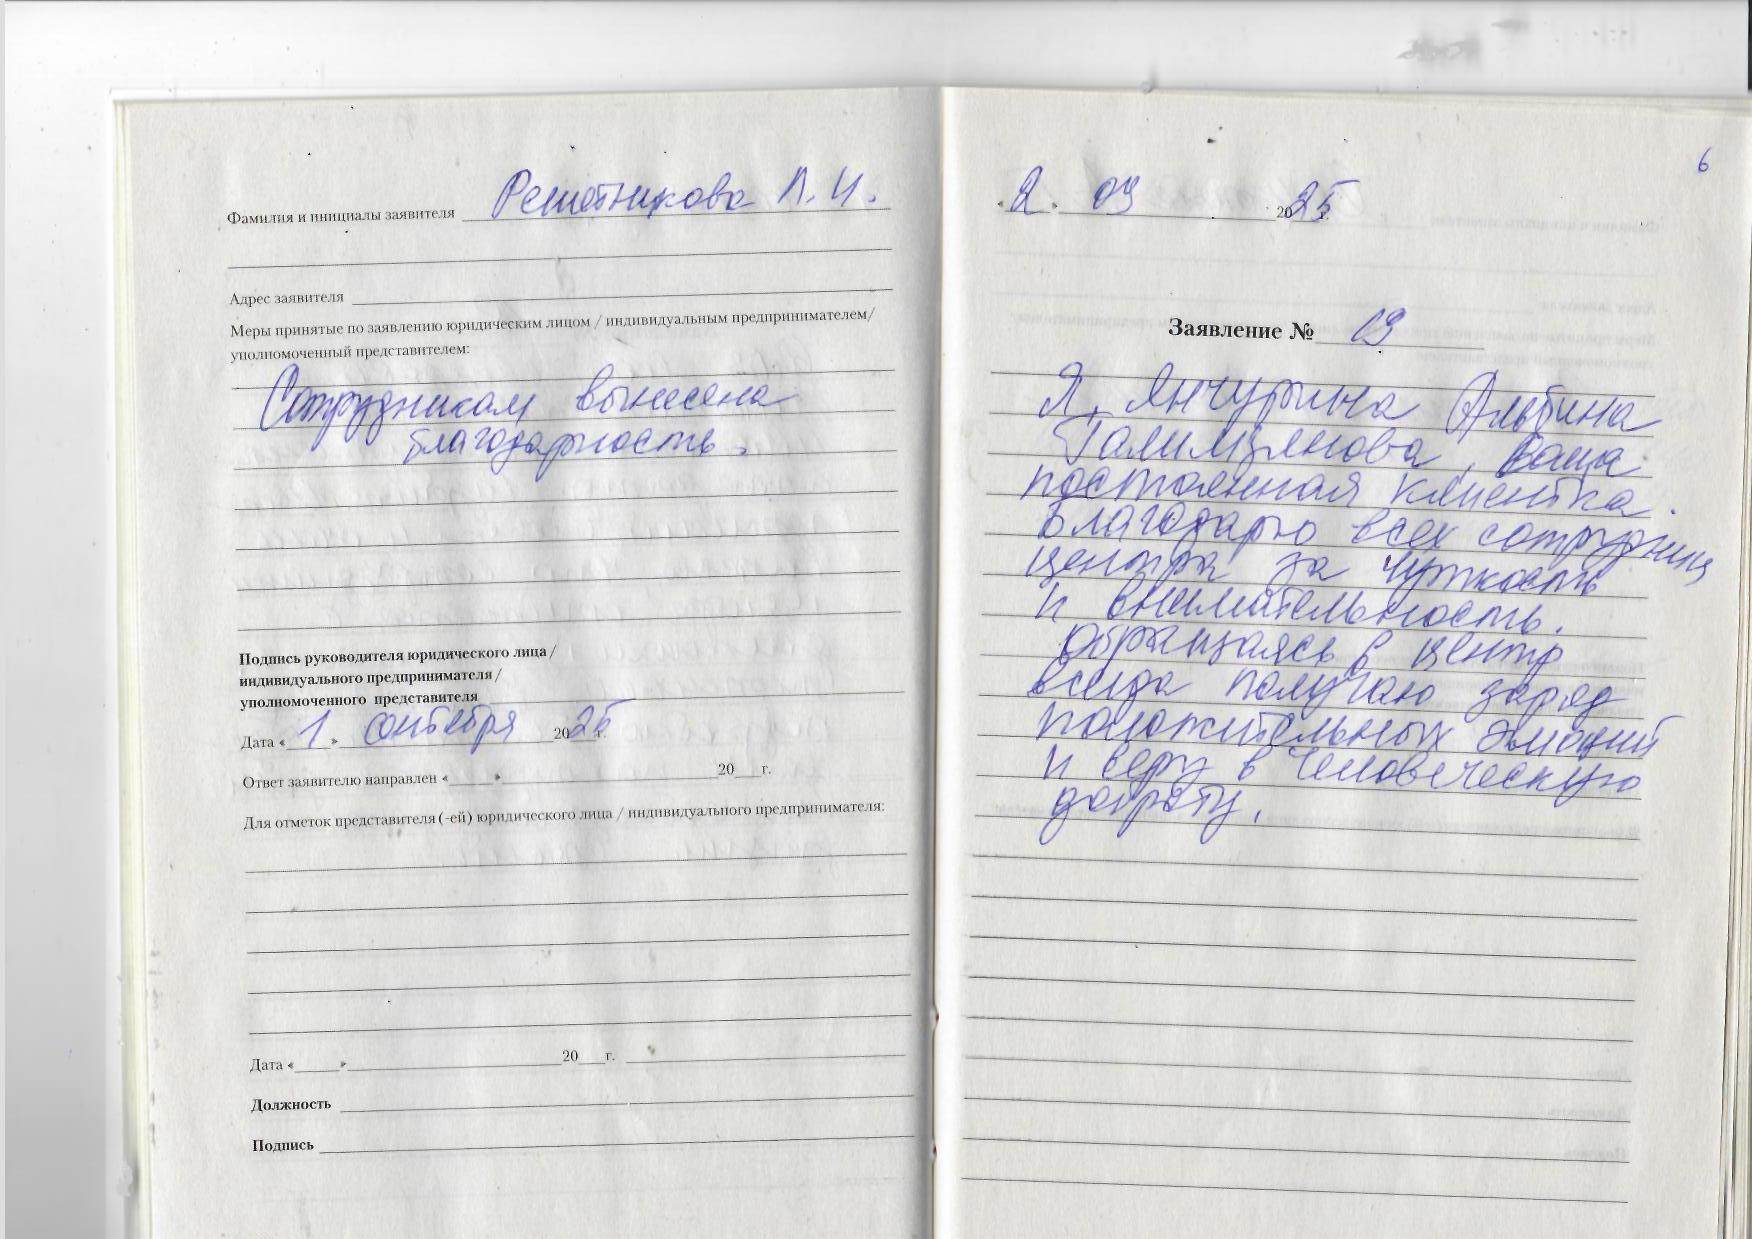 Фамилия и инициалы заявителя Решетникова Л. И.
Адрес заявителя
Меры принятые по заявлению юридическим лицом / индивидуальным предпринимателем/
уполномоченный представителем:
Сотрудникам вынесена
благодарность.
Подпись руководителя юридического лица/
индивидуального предпринимателя/
уполномоченного представителя
Дата «1» сентября 2025 г.
Ответ заявителю направлен «____» 20___г.
Для отметок представителя (-ей) юридического лица / индивидуального предпринимателя:
Дата «____» 20___г.
Должность
Подпись
6
«2» 09 2025 г.
Заявление № 19
Я, Янчурина Альбина
Галимзянова, Ваша
постоянная клиентка.
Благодарю всех сотрудниц
центра за чуткость
и внимательность.
Обращаясь в центр
всегда получаю заряд
положительных эмоций
и веру в человеческую
доброту.